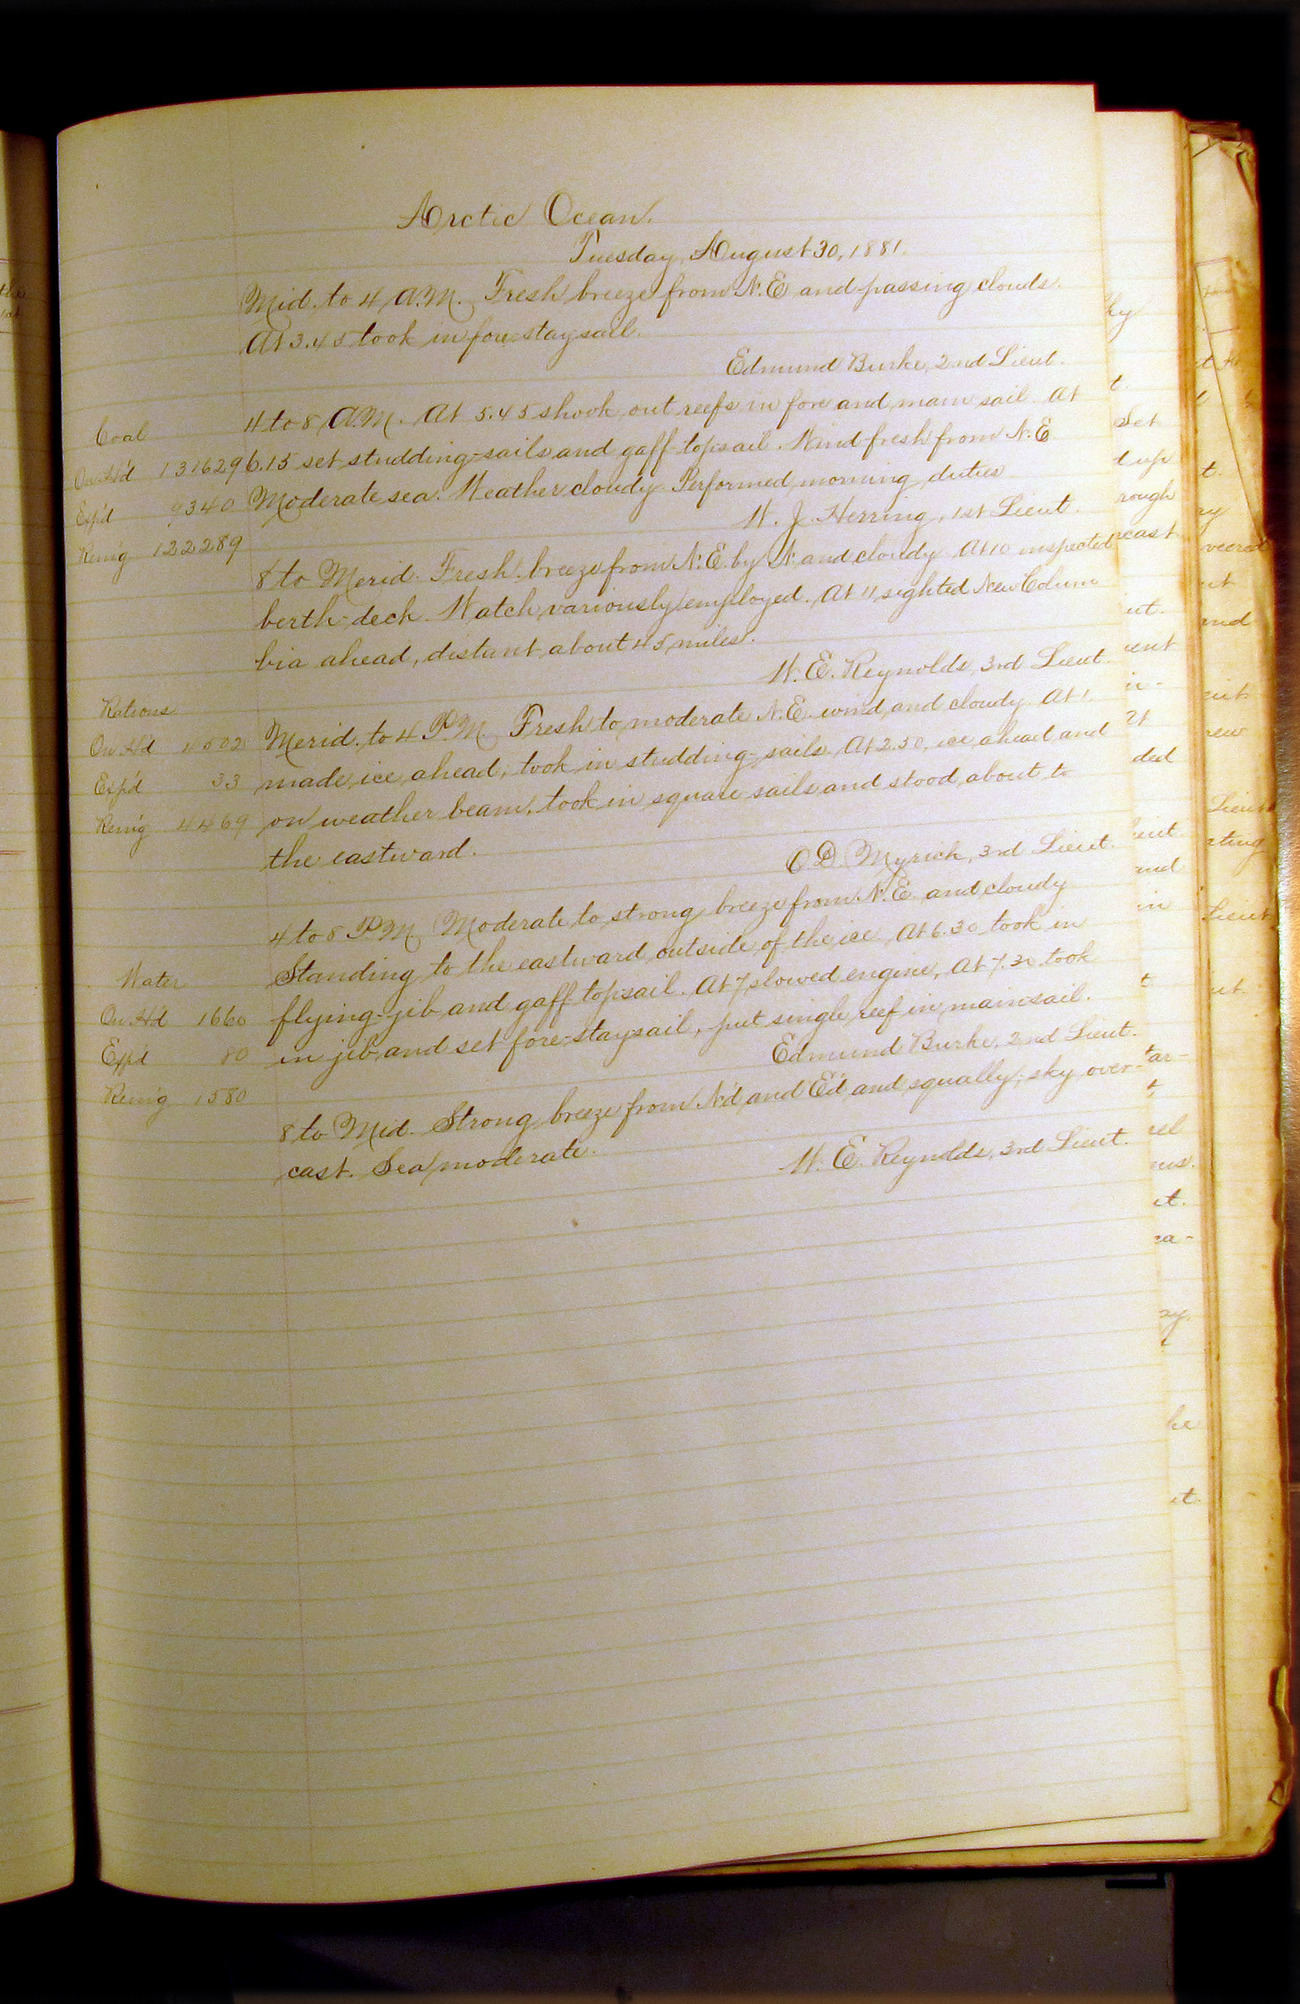 Arctic Ocean.
Tuesday, August 30, 1881.
Mid. to 4 A.M. Fresh breeze from N.E. and passing clouds.
At 3.45 took in fore staysail.
Edmund Burke, 2nd Lieut.
4 to 8 A.M. At 5.45 shook out reefs in fore and main sail. At
6.15 set studding-sails and gaff-topsail. Wind fresh from N.E
Moderate sea. Weather cloudy. Performed morning duties
W. J. Herring, 1st Lieut.
Coal
On H'd 131629
Exp'd 9340
Rem'g 122289
8 to Merid. Fresh breeze from N.E. by N. and cloudy. At 10 inspected
berth-deck. Watch variously employed. At 11 sighted New Colum
bia ahead, distant about 45 miles.
W. E. Reynolds, 3rd Lieut.
Rations
On H'd 4502
Exp'd 33
Rem'g 4469
Merid. to 4 P.M. Fresh to moderate N.E. wind and cloudy. At 1
made ice ahead; took in studding-sails. At 2.50, ice ahead and
on weather beam, took in square sails and stood about to
the eastward.
O D. Myrick, 3rd Lieut.
4 to 8 P.M. Moderate to strong breeze from N.E. and cloudy
Standing to the eastward outside of the ice. At 6.30 took in
flying-jib and gaff topsail. At 7 slowed engine. At 7.30 took
in jib and set fore-staysail, put single reef in mainsail.
Edmund Burke, 2nd Lieut.
Water
On H'd 1660
Exp'd 80
Rem'g 1580
8 to Mid. Strong breeze from N'd and E'd and squally; sky over-
cast. Sea moderate.
W. E. Reynolds, 3rd Lieut.